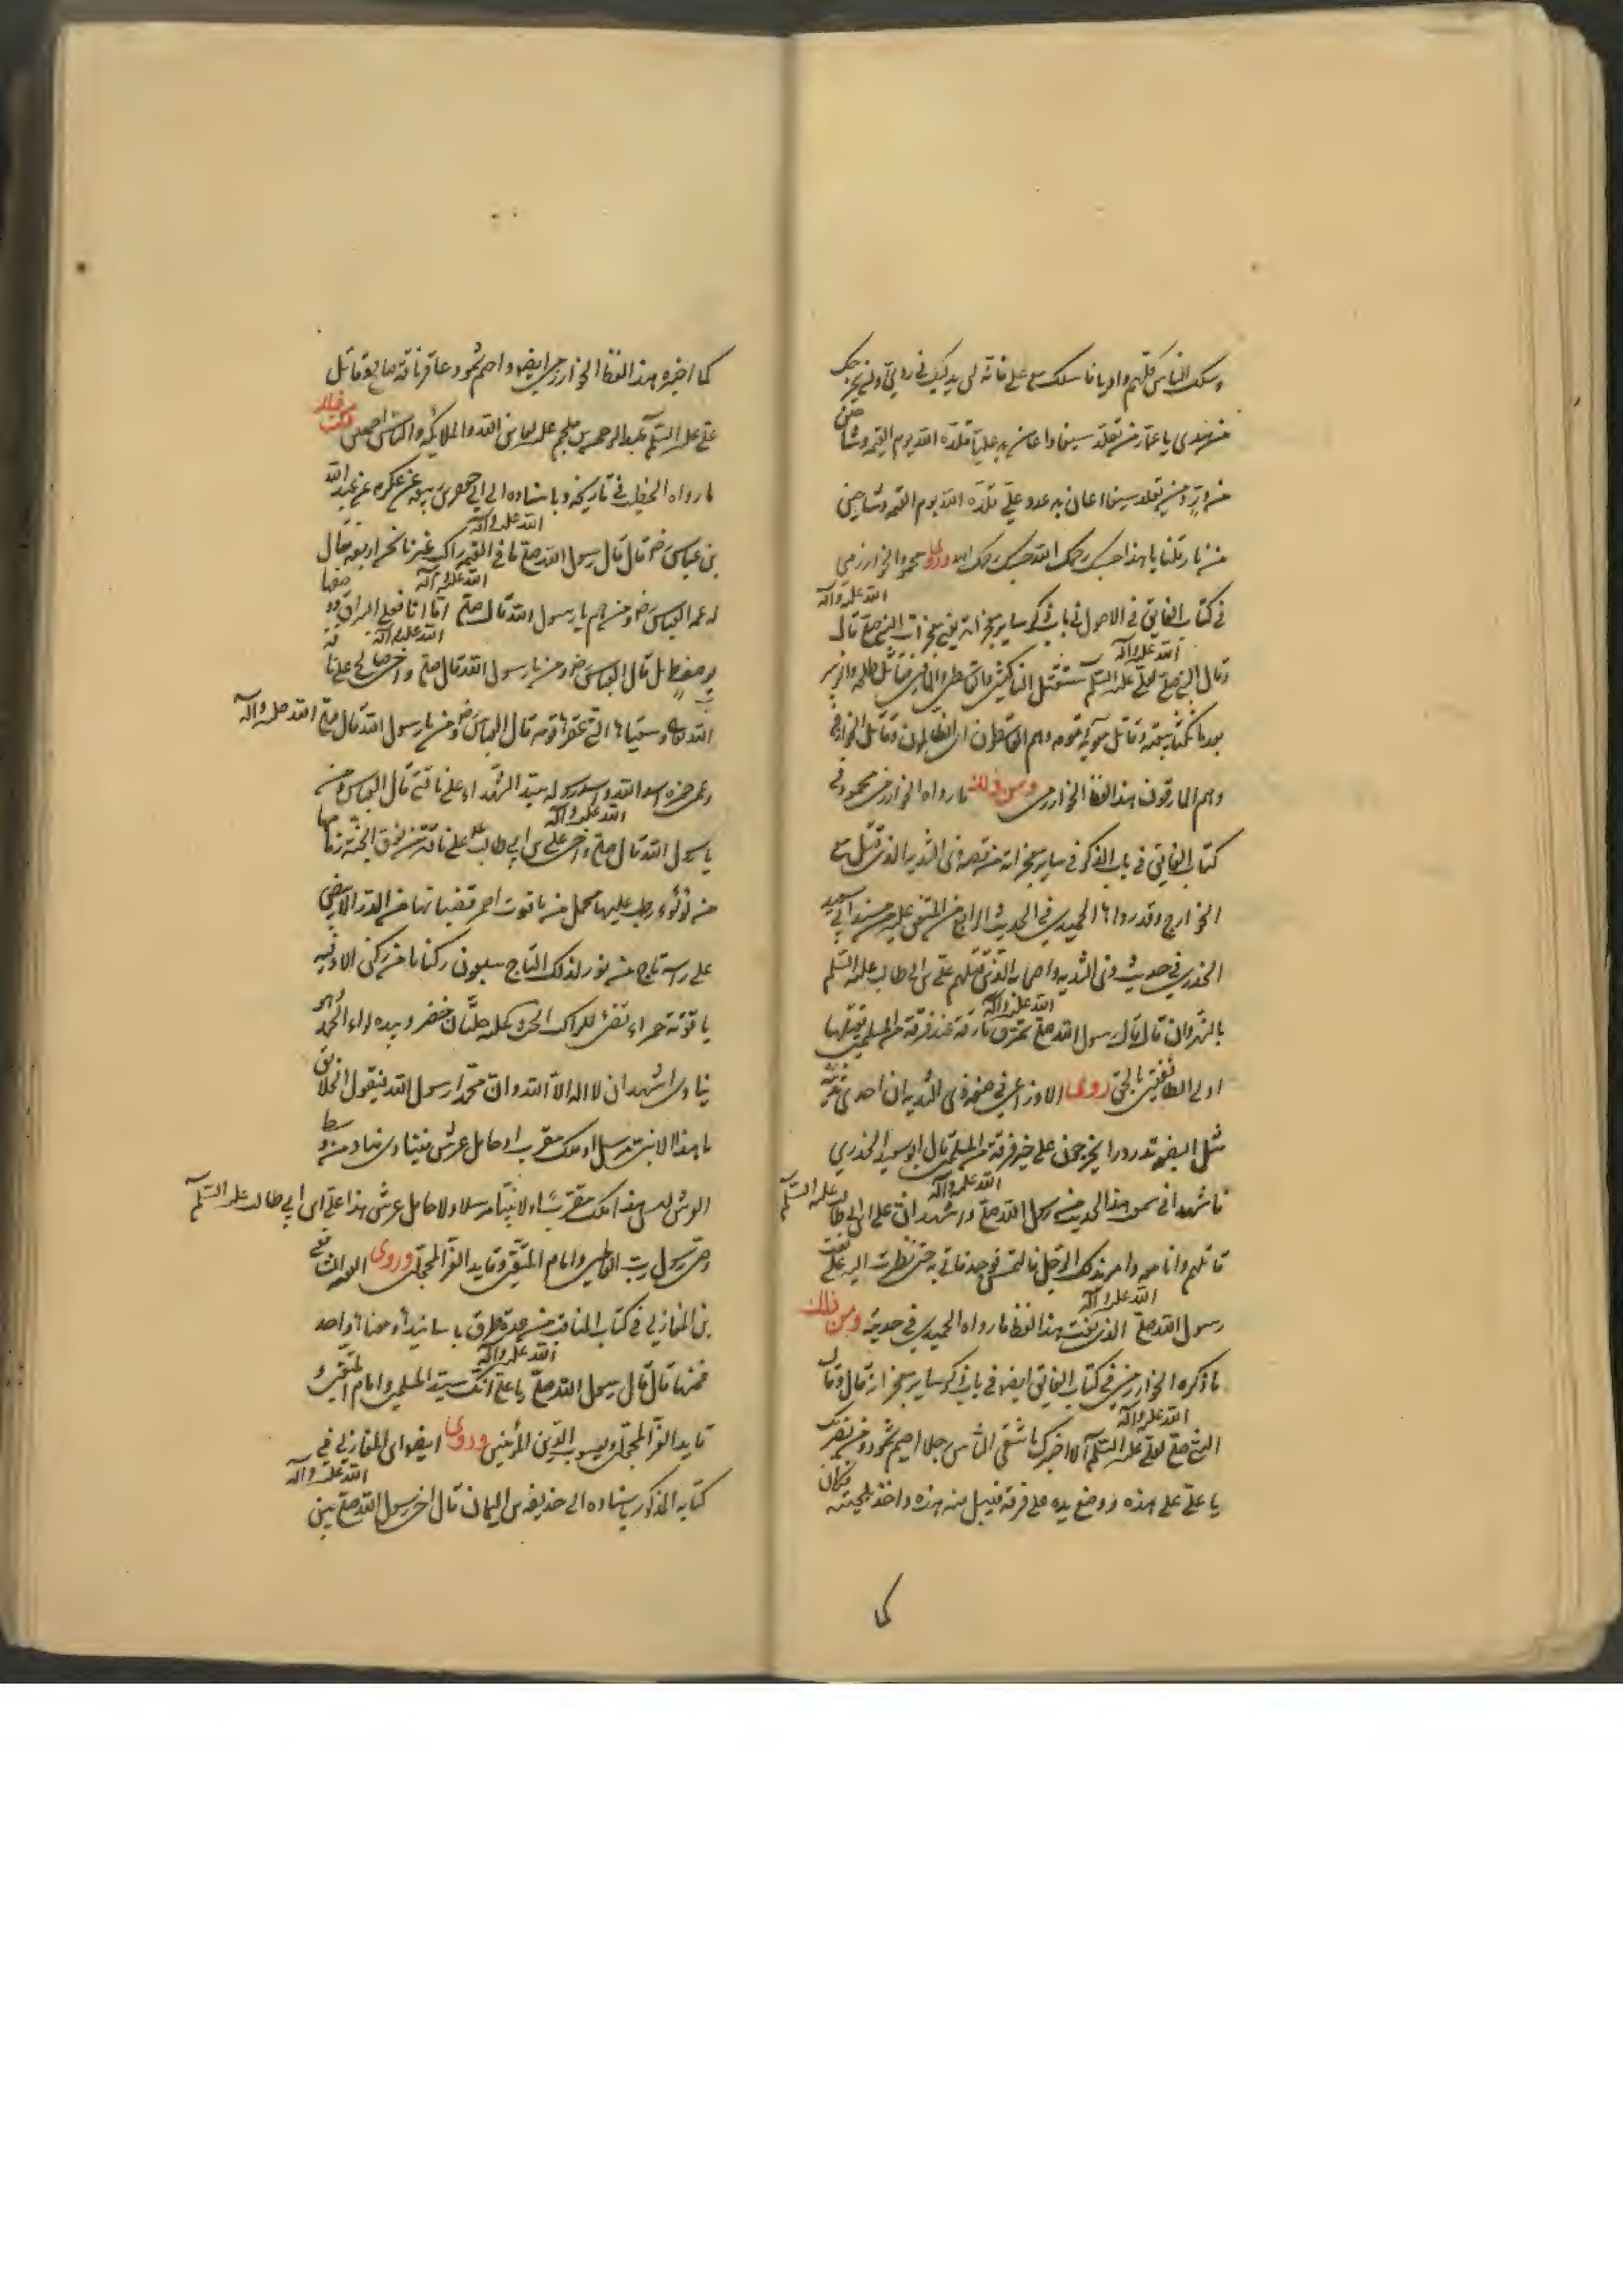 وسلك الناس كلهم واديا فاسلك مع علي فانه لن يدليك في ردى ولن يخرجك
من هدى يا عمار من تقلد سيفا واعان به عليا قلده الله يوم القيمة وشاحين
من در ومن تقلد سيفا اعان به عدو علي قلده الله يوم القيمة وشاحين
من نار قلنا يا هذا حسبك رحمك الله حسبك رحمك الله وروى محمود الخوارزمي
في كتاب الفايق في الاصول في باب ذكر ساير معجزاته يعني معجزات النبي صلى الله عليه وآله قال
وقال النبي صلى الله عليه وآله لعلي عليه السلم ستقتل الناكثين والقاسطين والمارقين فقاتل طلحة والزبير
بعد ما نكثا بيعته وقاتل معوية وقومه وهم القاسطون اي الظالمون وقاتل الخوارج
وهم المارقون هذا لفظ الخوارزمي ومن ذلك ما رواه الخوارزمي محمود في
كتاب الفايق في باب الذكر في ساير معجزاته من قصة ذي الثدية الذي قتل مع
الخوارج وقد رواها الحميدي في الحديث الرابع من المتفق عليه من مسند ابي سعيد
الخدري في حديث ذي الثدية واصحابه الذين قتلهم علي بن ابي طالب عليه السلم
بالنهروان قال قال رسول الله صلى الله عليه وآله تمرق مارقة عند فرقة من المسلمين يقتلها
اولى الطائفتين بالحق روى الاوزاعي في صفة ذي الثدية ان احدى ثدييه
مثل البضعة تدردر يخرجون على خير فرقة من المسلمين قال ابو سعيد الخدري
فاشهد اني سمعت هذا الحديث من رسول الله صلى الله عليه وآله واشهد ان علي بن ابي طالب عليه السلم
قاتلهم وانا معه وامر بذلك الرجل فالتمس فوجد فاتي به حتى نظرت اليه على نعت
رسول الله صلى الله عليه وآله الذي نعت هذا لفظ ما رواه الحميدي في حديثه ومن ذلك
ما ذكره الخوارزمي في كتاب الفايق ايضا في باب ذكر ساير معجزاته قال وقال
النبي صلى الله عليه وآله لعلي عليه السلم الا اخبرك باشقى الناس رجلا احيمر ثمود ومن يضربك
يا علي على هذه ووضع يده على قرنه فيبل منه هذه واخذ بلحيته فكان
كما
كما اخبره هذا لفظ الخوارزمي ايضا واحيمر ثمود عاقر ناقة صالح وقاتل
علي عليه السلم عبد الرحمن بن ملجم عليه لعاين الله والملائكة والناس اجمعين ومن ذلك
ما رواه الخطيب في تاريخه وباسناده الى ابي جعفر بن ربيعة عن عكرمة عن عبد الله
بن عباس رض قال قال رسول الله صلى الله عليه وآله ما في القيمة راكب غيرنا نحن اربعة فقال
له عمه العباس رض ومن هم يا رسول الله قال صلى الله عليه وآله اما انا فعلى البراق
قال العباس رض ومن يا رسول الله قال صلى الله عليه وآله واخي صالح على ناقة
الله وسقياها التي عقرها قومه قال العباس رض ومن يا رسول الله قال صلى الله عليه وآله
وعمي حمزه اسد الله واسد رسوله سيد الشهداء على ناقتي قال العباس ومن
يا رسول الله قال صلى الله عليه وآله واخي علي بن ابي طالب على ناقة من نوق الجنة زمامها
من لؤلؤ رطب عليها محمل من ياقوت احمر قضبانها من الدر الابيض
على راسه تاج من نور لذلك التاج سبعون ركنا ما من ركن الا وفيه
ياقوتة حمراء تضئ للراكب المحث عليه حلتان خضر وبيده لواء الحمد وهو
ينادي اشهد ان لا اله الا الله وان محمدا رسول الله فيقول الخلائق
ما هذا الا نبي مرسل او ملك مقرب او حامل عرش فينادي مناد من وسط
العرش ليس هذا ملك مقرب ولا نبيا مرسلا ولا حامل عرش هذا علي بن ابي طالب عليه السلم
وصي رسول رب العالمين وامام المتقين وقايد الغر المحجلين وروى الفقيه الشافعي
بن المغازلي في كتاب المناقب من عدة طرق باسانيدها ومعناها واحد
فمنها قال قال رسول الله صلى الله عليه وآله يا علي انك سيد المسلمين وامام المتقين و
قايد الغر المحجلين ويعسوب الدين المؤمنين وروى ايضا ابن المغازلي في
كتابه المذكور باسناده الى حذيفة بن اليمان قال اخى رسول الله صلى الله عليه وآله بين